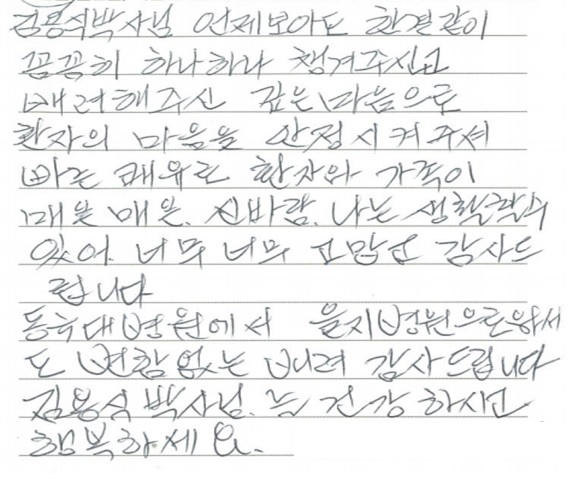 김용식박사님 언제보아도 한결같이
꼼꼼히 하나하나 챙겨주시고
배려해주신 깊은마음으로
환자의 마음을 안정시켜주셔
빠른 쾌유로 환자와 가족이
매일 매일. 신바람. 나는 생활할수
있어. 너무 너무 고맙고 감사드
립니다
동국대병원에서 을지병원으로와서
도 변함없는 배려 감사드립니다
김용식 박사님. 늘 건강 하시고
행복하세요.